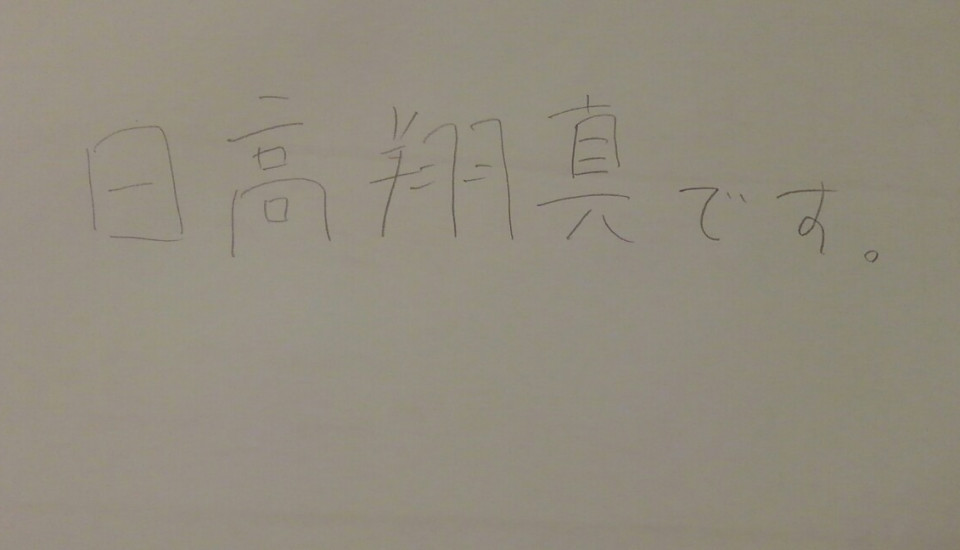 日高翔真です。